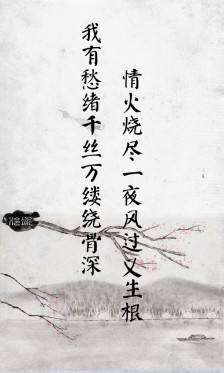 我有愁绪千丝万缕绕骨深
情火烧尽一夜风过又生根